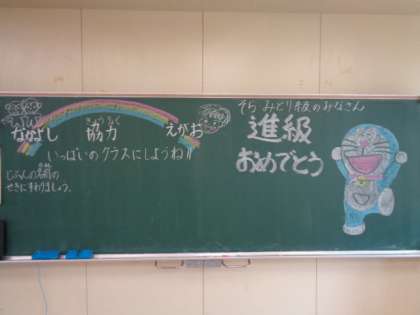 なかよし 協力 えがお
きょうりょく
いっぱいのクラスにしようね!!
じぶんの名前の
せきにすわりましょう。
そら みどり級のみなさん
進級
おめでとう